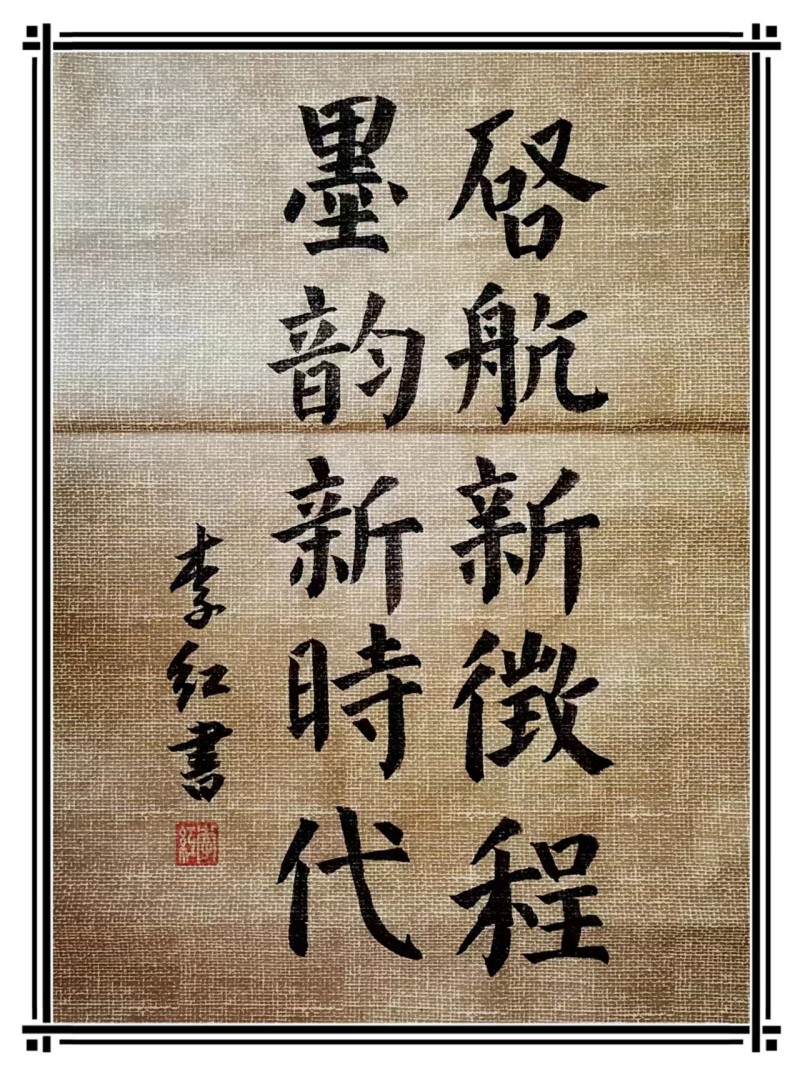 启航新徵程
墨韵新時代
李红書
李红